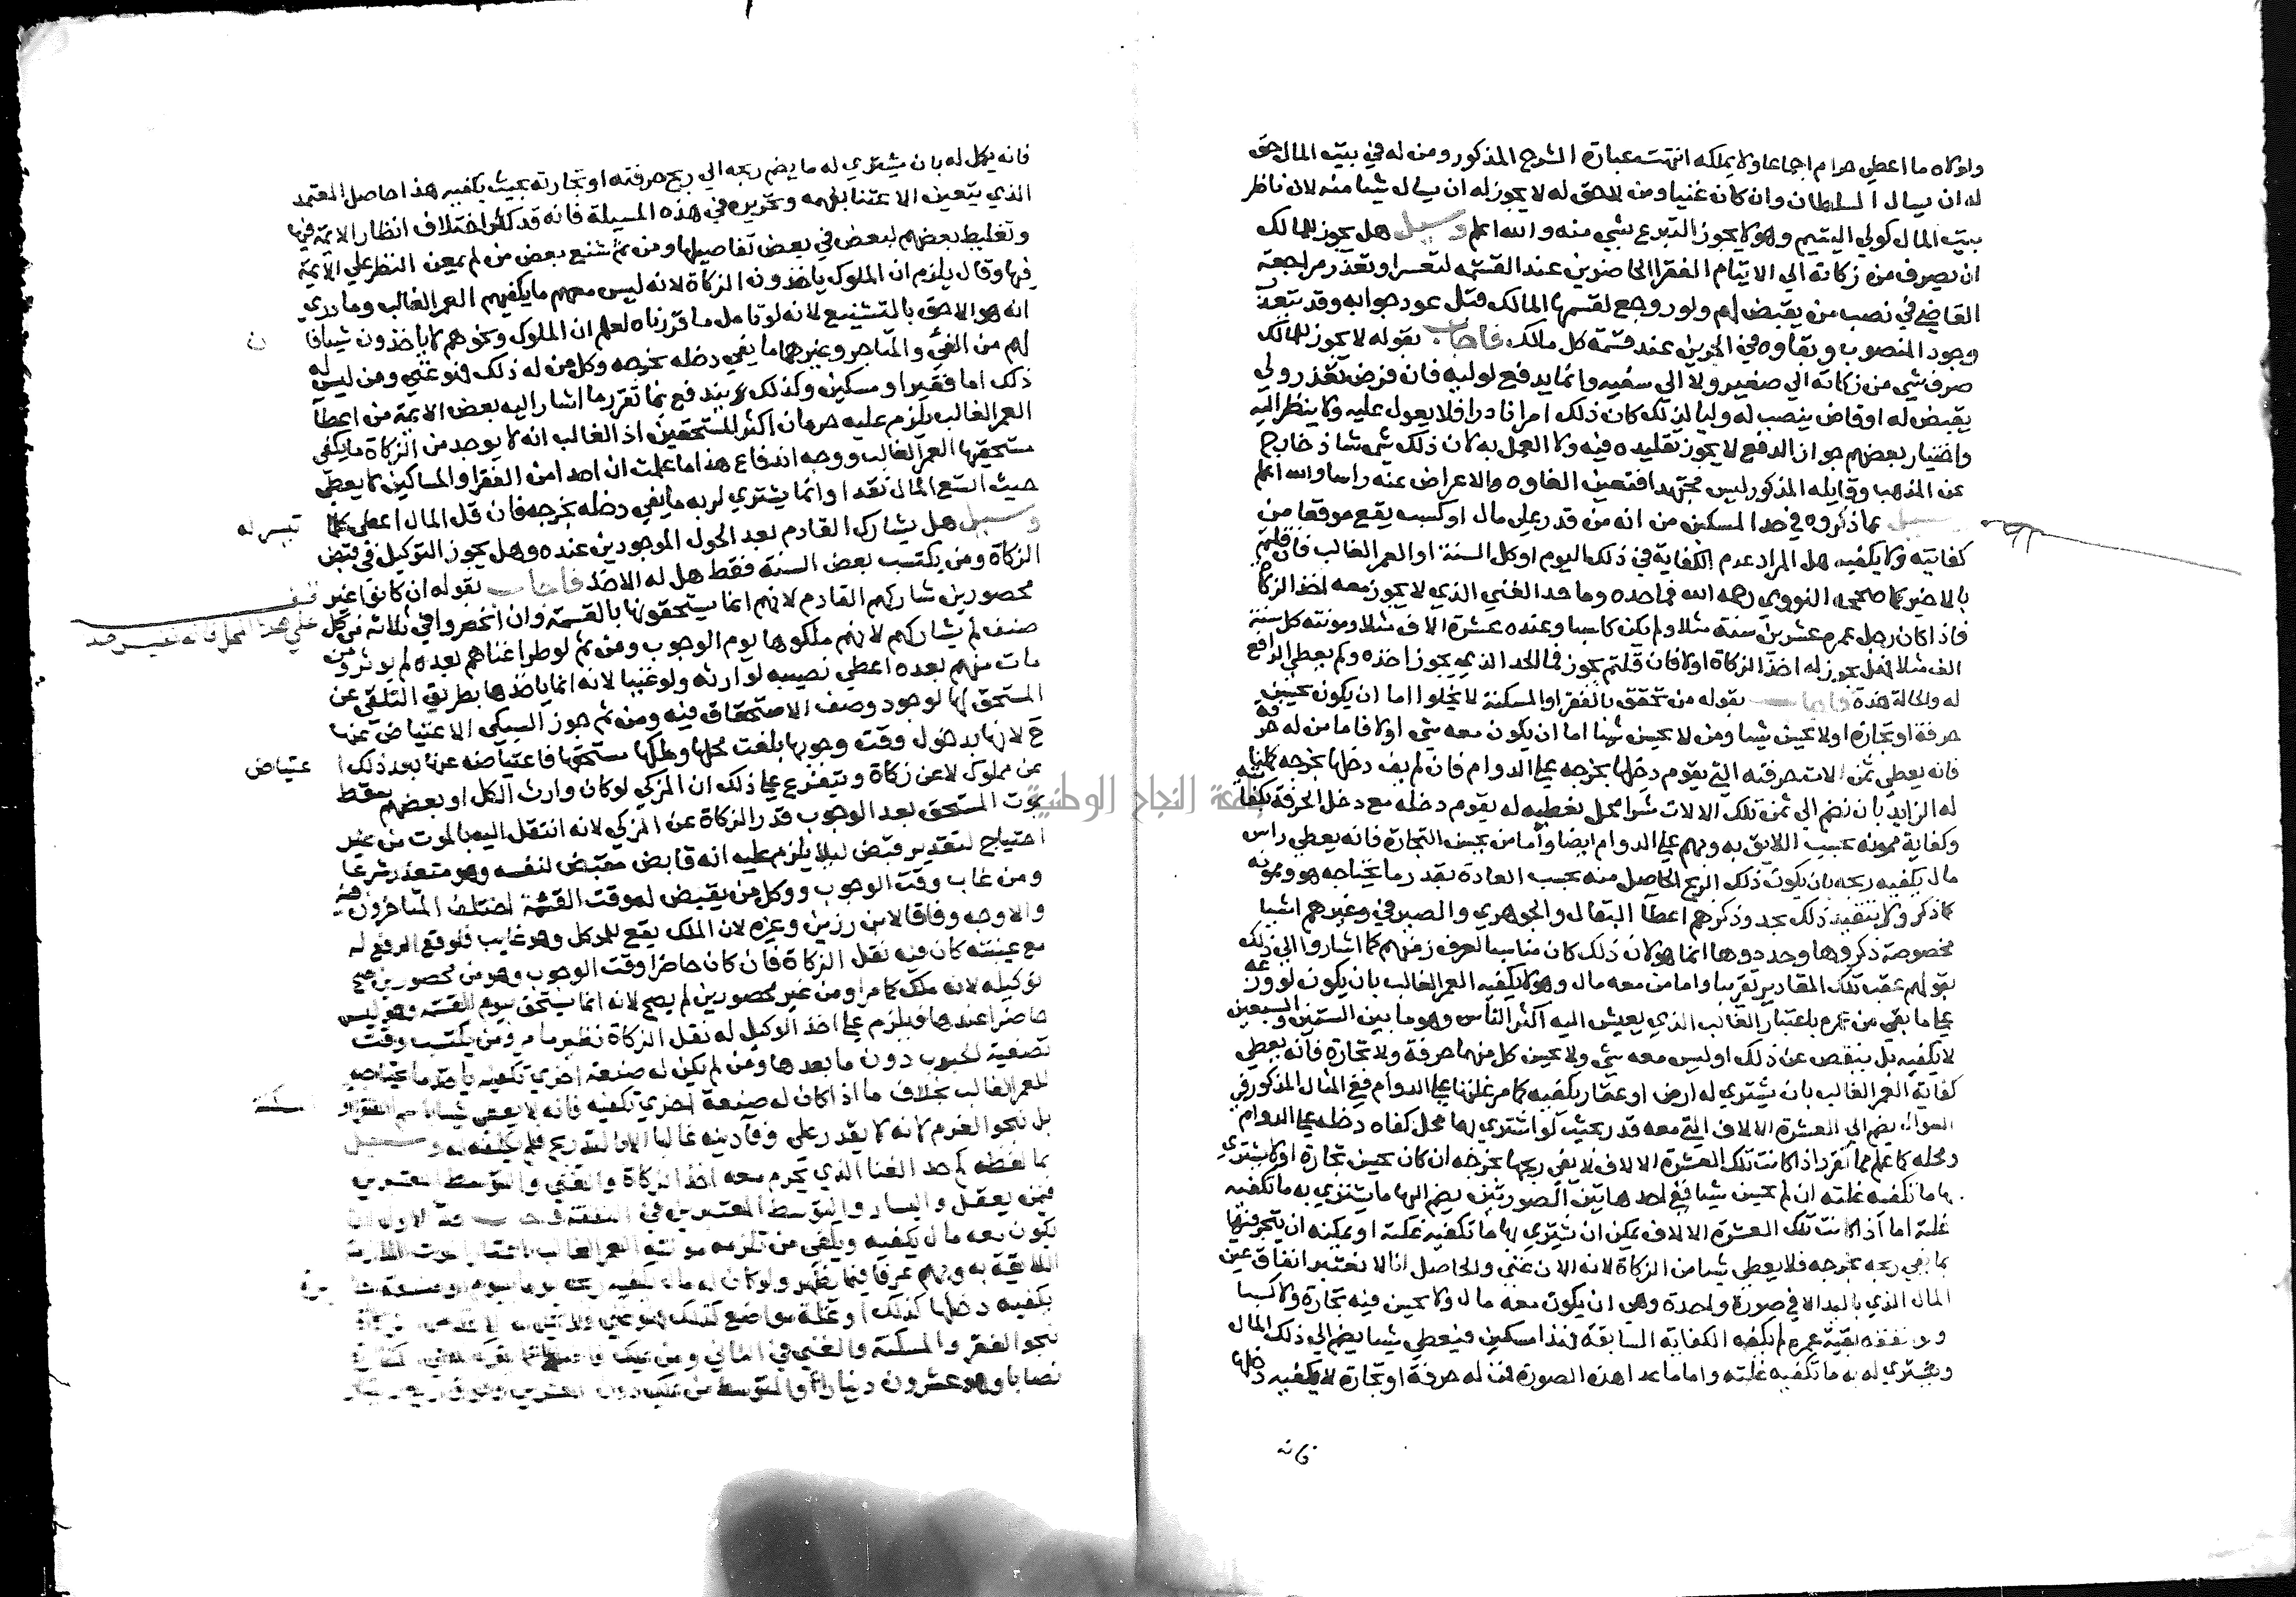 واولاه ما اعطي حرام اجماعا ولا يملكه انتهت عبارة الشرح المذكور ومن له في بيت المال حق
له ان يسال السلطان وان كان غنيا ومن لا حق له لا يجوز له ان يسال شيا منه لان ناظر
بيت المال كولي اليتيم وهو لا يجوز التبرع بشي منه والله اعلم وسيل هل يجوز للمالك
ان يصرف من زكاته الي الايتام الفقرا الحاضرين عند القسمه لتعسر او تعذر مراجعة
القاضي في نصب من يقبض لهم ولو روجع لقسمها المالك قبل عود جوابه وقد يتعذر
وجود المنصوب وبقاوه في الجرين عند قسمة كل مالك فاجاب بقوله لا يجوز للمالك
صرف شي من زكاته الي صغير ولا الي سفيه وانما يدفع لوليه فان فرض تعذر ولي
يقبض له او قاض ينصب له وليا لذلك كان ذلك امرا نادرا فلا يعول عليه ولا ينظر اليه
واختيار بعضهم جواز الدفع لا يجوز تقليده فيه ولا العمل به لان ذلك شي شاذ خارج
عن المذهب وقايله المذكور ليس مجتهدا فتعين الغاوه والاعراض عنه راسا والله اعلم
وسيل عما ذكروه في حد المسكين من انه من قدر علي مال او كسب يقع موقعا من
كفايته ولا يكفيه هل المراد عدم الكفاية في ذلك اليوم او كل السنة او العمر الغالب فان قلتم
بالاخير كما صححه النووي رحمه الله فما حده وما حد الغني الذي لا يجوز معه اخذ الزكاة
فاذا كان رجل عمره عشرين سنة مثلا ولم يكن كاسبا وعنده عشرة الاف مثلا ومونته كل سنة
الف مثلا فهل يجوز له اخذ الزكاة اولا فان قلتم يجوز فما الحد الذي يجوز اخذه وكم يعطي الدافع
له والحالة هذه فاجاب بقوله من تحقق بالفقر او المسكنة لا يخلوا اما ان يكون يحسن
حرفة او تجارة او لا يحسن شيا ومن لا يحسن شيا اما ان يكون معه شي اولا فاما من له حرفة
فانه يعطي ثمن الات حرفته التي يقوم دخلها بخرجه علي الدوام فان لم يف دخلها بخرجه كملنا
له الزايد بان نضم الي ثمن تلك الالات شرا محل نعطيه له يقوم دخله مع دخل الحرفة بكفايته
وكفاية ممونه بحسب اللايق به وبهم علي الدوام ايضا واما من يحسن التجارة فانه يعطي راس
مال يكفيه ربحه بان يكون ذلك الربح الحاصل منه بحسب العادة بقدر ما يحتاجه هو وممونه
كما ذكر ولا يتقيد ذلك بحد وذكرهم اعطآ البقال والجوهري والصيرفي وغيرهم اشيا
مخصوصة ذكروها وحددوها انما هو لان ذلك كان مناسبا لعرف زمنهم كما اشاروا الي ذلك
بقولهم عقب تلك المقادير تقريبا واما من معه مال وهو لا يكفيه العمر الغالب بان يكون لو وزعه
علي ما بقي من عمره باعتبار الغالب الذي يعيش اليه اكثر الناس وهو ما بين الستين والسبعين
لا يكفيه بل ينقص عن ذلك او ليس معه شي ولا يحسن كل منهما حرفة ولا تجارة فانه يعطي
كفاية العمر الغالب بان يشتري له ارض او عقار يكفيه كما مر غلتها علي الدوام ففي المثال المذكور في
السوال يضم الي العشرة الالاف التي معه قدر بحيث لو اشتري بها محل كفاه دخله علي الدوام
ومحله كما علم مما تقرر اذا كانت تلك العشرة الالاف لا يفي ربحها بخرجه ان كان يحسن تجارة او لا يشتري
بها ما تكفيه غلته ان لم يحسن شيا ففي احد هاتين الصورتين يضم اليها ما يشتري به ما تكفيه
غلته اما اذا كانت تلك العشرة الالاف يمكن ان يشتري بها ما تكفيه غلته او يمكنه ان يتجر فيها
بما يفي ربحه بخرجه فلا يعطي شيا من الزكاة لانه الان غني والحاصل انا لا نعتبر انفاق عين
المال الذي باليد الا في صورة واحدة وهي ان يكون معه مال ولا يحسن فيه تجارة ولا كسبا
ولو نفقه بقية عمره لم يكفه الكفاية السابقة فهذا مسكين فيعطي شيا يضم الي ذلك المال
ويشتري له به ما تكفيه غلته واما ما عدا هذه الصورة فمن له حرفة او تجارة لا يكفيه دخلها
فانه
فانه يكمل له بان يشتري له ما يضم ربحه الي ربح حرفته او تجارته بحيث يكفيه هذا حاصل المعتمد
الذي يتعين الاعتنا بفهمه وتحريره في هذه المسيلة فانه قد كثر اختلاف انظار الايمة فيها
وتغليط بعضهم لبعض في بعض تفاصيلها ومن ثم شنع بعض من لم يمعن النظر علي الايمة
فيها وقال يلزم ان الملوك ياخذون الزكاة لانه ليس معهم ما يكفيهم العمر الغالب وما دري
انه هو الاحق بالتشنيع لانه لو تامل ما قررناه لعلم ان الملوك ونحوهم لا ياخذون شيا فان
لهم من الفي والمتاجر وغيرهما ما يفي دخله بخرجه وكل من له ذلك فهو غني ومن ليس له
ذلك اما فقير او مسكين وكذلك يندفع بما تقرر ما اشار اليه بعض الايمة من اعطآ
العمر الغالب يلزم عليه حرمان اكثر المستحقين اذ الغالب انه لا يوجد من الزكاة ما يكفي
مستحقيها العمر الغالب ووجه اندفاع هذا ما علمت ان احدا من الفقرا والمساكين لا يعطي
حيث اتسع المال نقدا وانما يشتري له به ما يفي دخله بخرجه فان قل المال اعطي كل ما تيسر له
وسيل هل يشارك القادم بعد الحول الموجودين عنده وهل يجوز التوكيل في قبض
الزكاة ومن يكتسب بعض السنة فقط هل له الاخذ فاجاب بقوله ان كانوا غير
محصورين شاركهم القادم لانهم انما يستحقونها بالقسمة وان انحصروا في ثلاثة من كل
صنف لم يشاركهم لانهم ملكوها يوم الوجوب ومن ثم لو طرا غناهم بعده لم يوثر ومن
مات منهم بعده اعطي نصيبه لوارثه ولو غنيا لانه انما ياخذها بطريق التلقي عن
المستحق لها لوجود وصف الاستحقاق فيه ومن ثم جوز السبكي الاعتياض عنها
ح لانها بدخول وقت وجوبها بلغت محلها وملكها مستحقها فاعتياضه عنها بعد ذلك اعتياض
عن مملوك لا عن زكاة ويتفرع علي ذلك ان المزكي لو كان وارث الكل او بعضهم سقط
بموت المستحق بعد الوجوب قدر الزكاة عن المزكي لانه انتقل اليه بالموت من غير
احتياج لتقدير قبض ليلا يلزم عليه انه قابض مقبض لنفسه وهو متعذر شرعا
ومن غاب وقت الوجوب ووكل من يقبض له وقت القسمة اختلف المتاخرون فيه
والاوجه وفاقا لابن رزين وغيره لان الملك يقع للموكل وهو غايب فلو وقع الدفع له
مع غيبته كان فيه نقل الزكاة فان كان حاضرا وقت الوجوب وهو من محصورين صح
توكيله لانه ملك كما مر او من غير محصورين لم يصح لانه انما يستحق يوم القسمة وهو ليس
حاضرا عندها فيلزم علي اخذ الوكيل له نقل الزكاة نظير ما مر ومن يكتسب وقت
تصفية الحبوب دون ما بعدها ومن لم يكن له صنعة اخري تكفيه ياخذ ما يحتاجه
للعمر الغالب بخلاف ما اذا كان له صنعة اخري تكفيه فانه لا يعطي شيا باسم الفقر او المسكنة
بل نحو الغرم لانه لا يقدر علي وفآ دينه غالبا الا بالتدريج فلم يكلفه وسيل
بما لفظه كم حد الغنا الذي يحرم معه اخذ الزكاة والغني والمتوسط المعتبرين
فيمن يعقل واليسار والتوسط المعتبرين في النفقة
يكون معه مال يكفيه ويكفي من تلزمه مونته العمر الغالب
اللايقة به وبهم عرفا فيما يظهر ولو كان له مال
يكفيه دخلها كذلك او غلة مواضع كذلك فهو غني
نحو الفقر والمسكنة والغني في الثاني
نصابا وهو عشرون دينارا والمتوسط من يملك دون العشرين
جامعة النجاح الوطنية